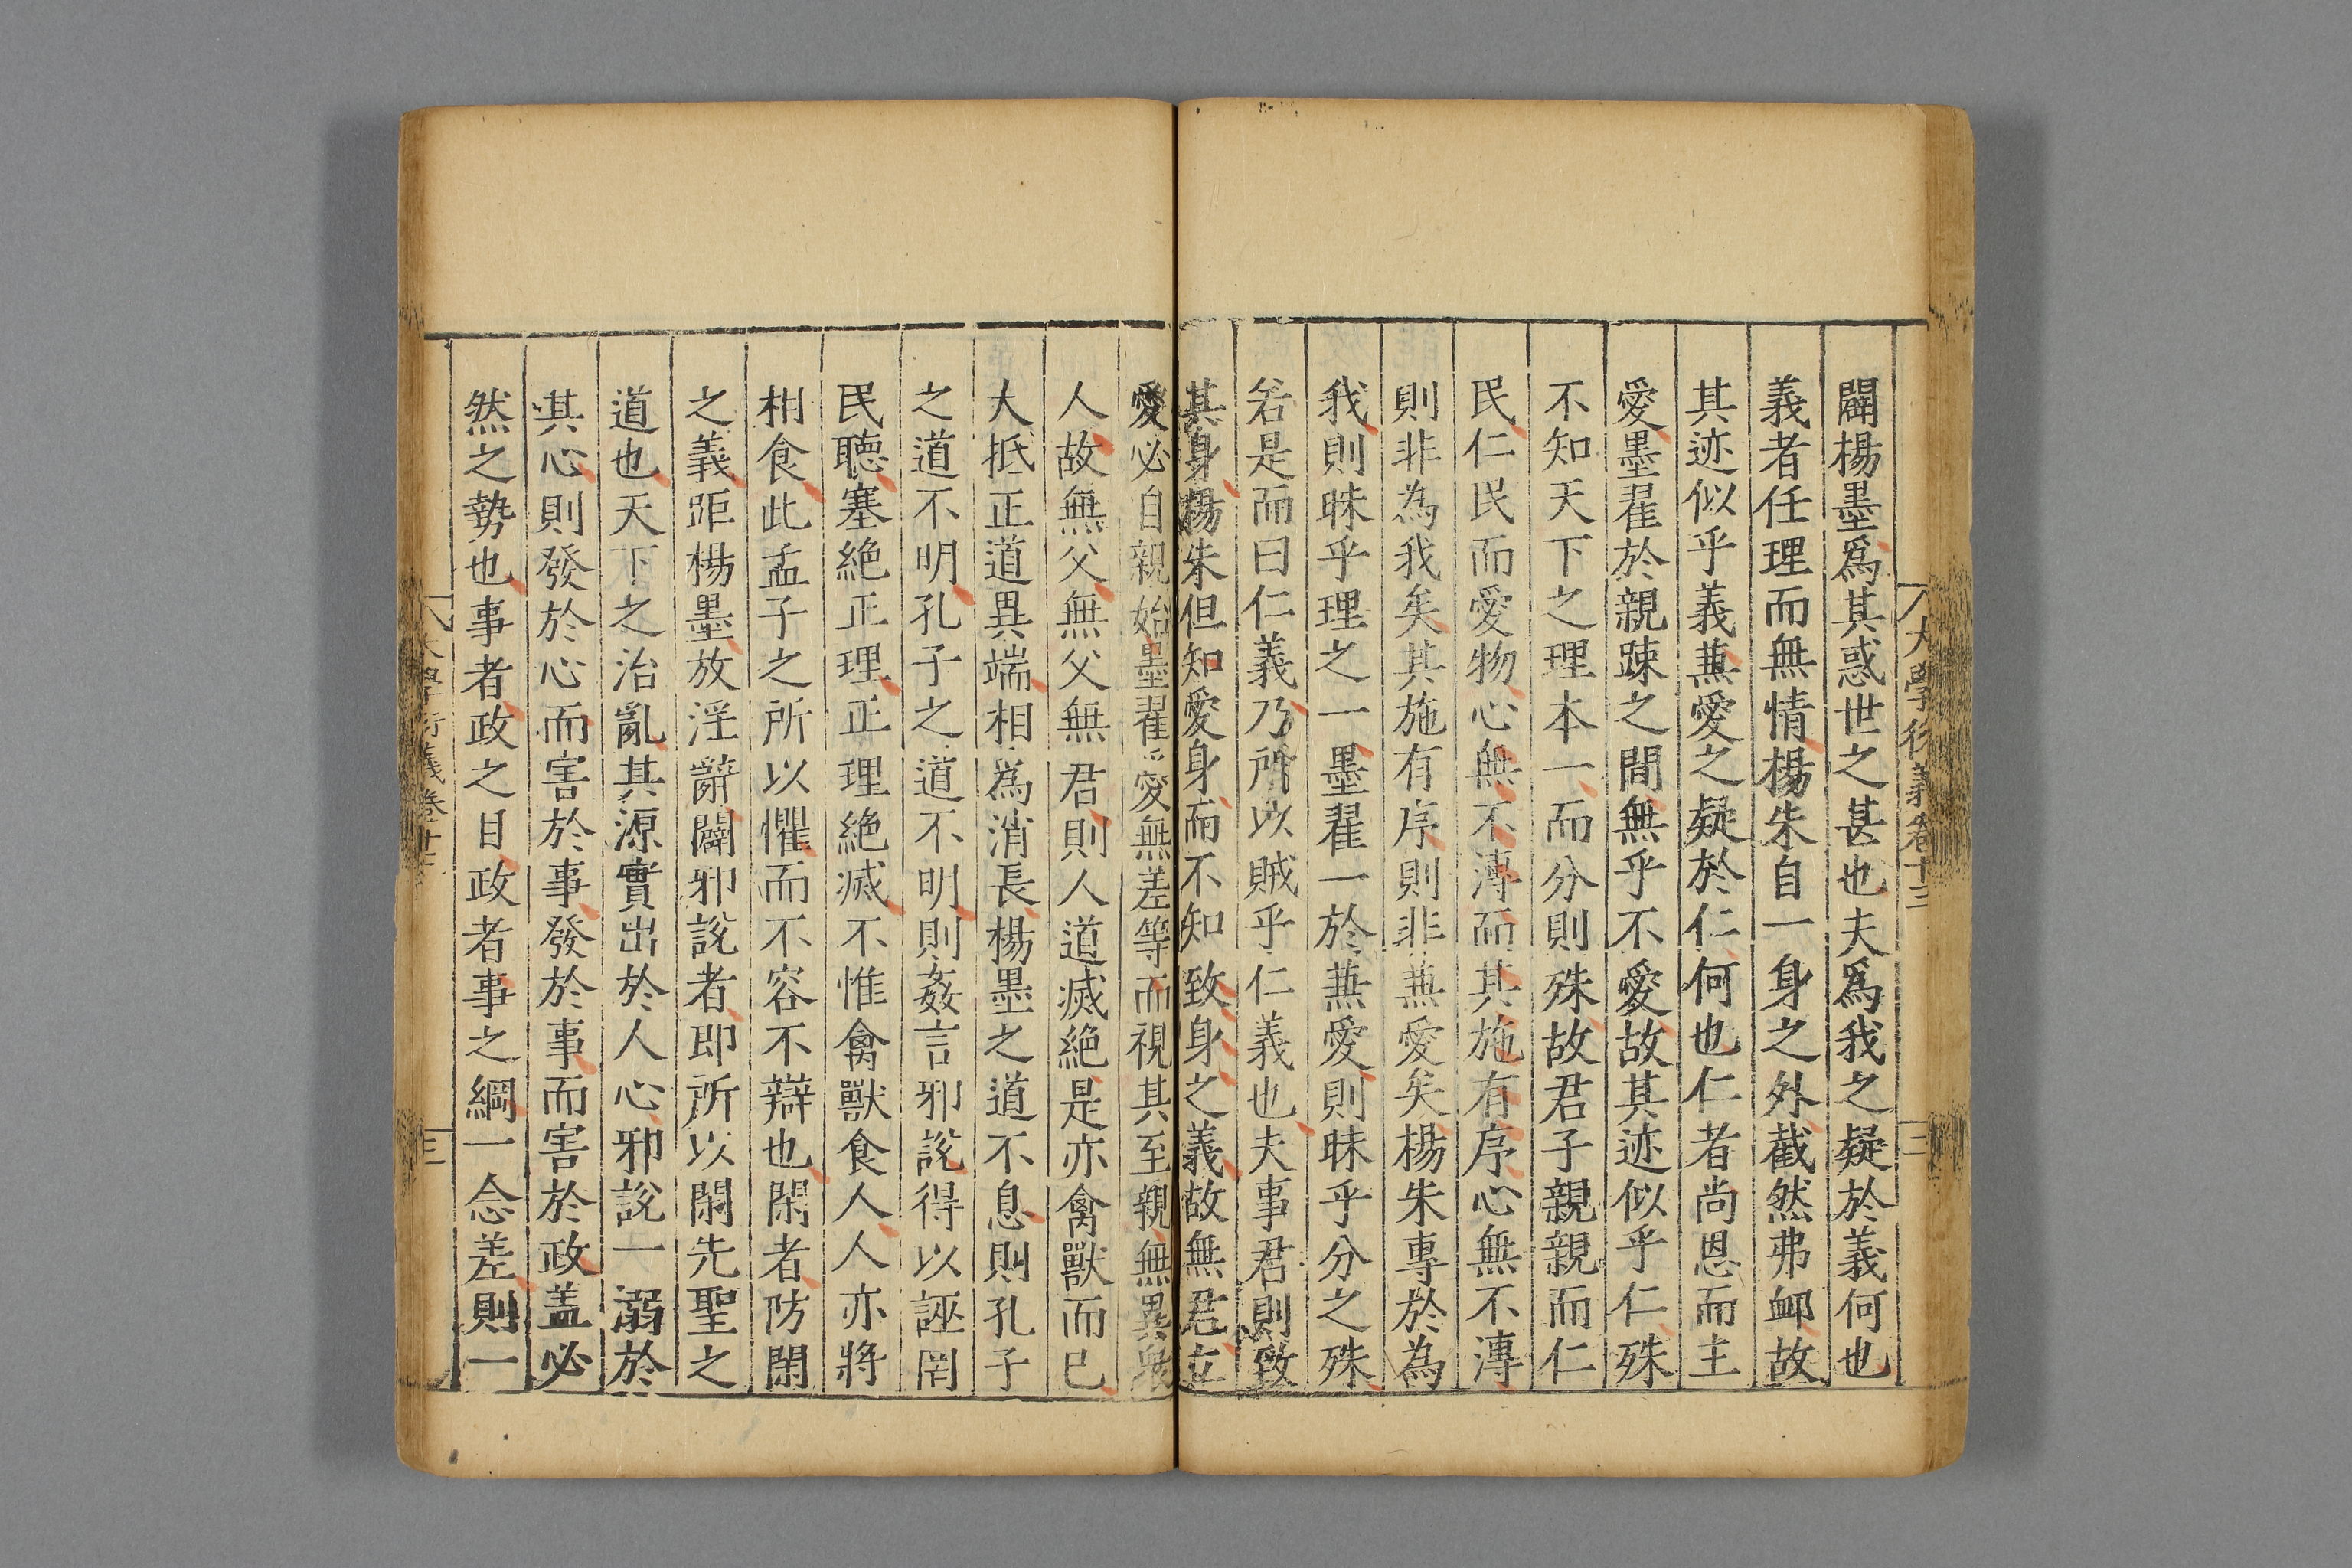 闢楊墨爲其惑世之甚也夫爲我之疑於義何也
義者任理而無情楊朱自一身之外截然弗卹故
其迹似乎義蕪愛之疑於仁何也仁者尚恩而主
愛墨翟於親踈之間無乎不愛故其迹似乎仁殊
不知天下之理本一而分則殊故君子親親而仁
民仁民而愛物心無不溥而其施有序心無不溥
則非為我矣其施有序則非蕪愛矣楊朱專於為
我則昧乎理之一墨翟一於蕪愛則昧乎分之殊
若是而曰仁義乃所以賊乎仁義也夫事君則致
其身楊朱但知愛身而不知致身之義故無君立
愛必自親始墨翟愛無差等而視其至親無異衆
人故無父無父無君則人道滅絶是亦禽獸而已
大抵正道異端相爲消長楊墨之道不息則孔子
之道不明孔子之道不明則姦言邪說得以誣罔
民聽塞絶正理正理絶滅不惟禽獸食人人亦將
相食此孟子之所以懼而不容不辯也閑者防閑
之義距楊墨放淫辭闢邪說者即所以閑先聖之
道也天下之治亂其源實出於人心邪說一溺於
其心則發於心而害於事發於事而害於政盖必
然之勢也事者政之目政者事之綱一念差則一
大學衍義卷十三
三
大學衍義卷十三
三